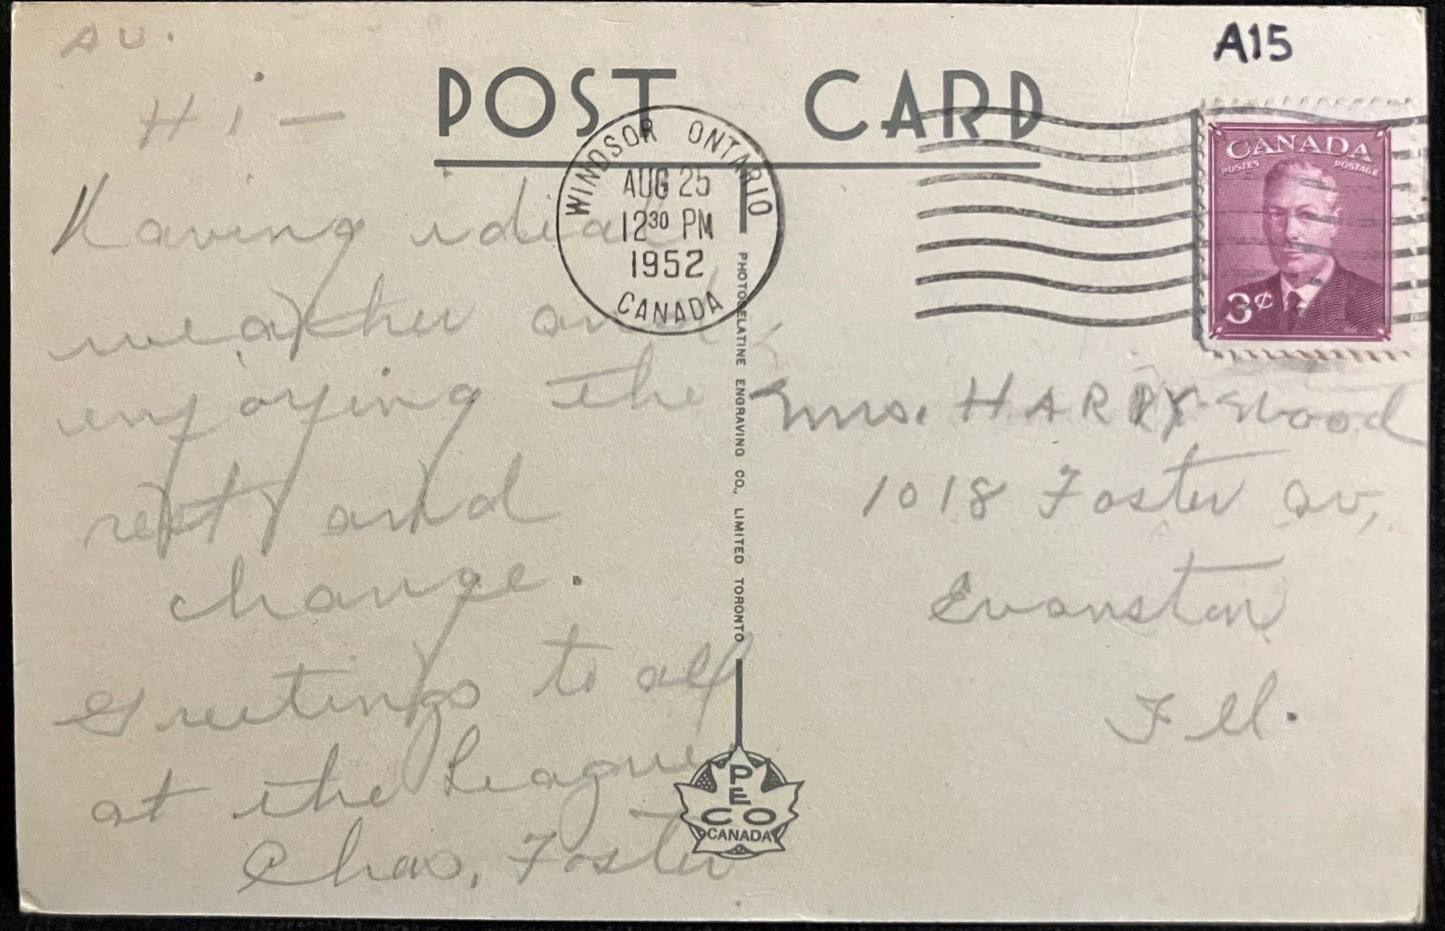 AU.
Hi –
Having ideal
weather and
enjoying the
rest and
change.
Greetings to all
at the League
Chas. Foster
POST CARD
WINDSOR ONTARIO
AUG 25
12³⁰ PM
1952
CANADA
A15
CANADA
POSTES POSTAGE
3¢
PHOTOGELATINE ENGRAVING CO., LIMITED TORONTO
Mrs. HARRY Wood
1018 Foster Av,
Evanston
Ill.
PECO
CANADA